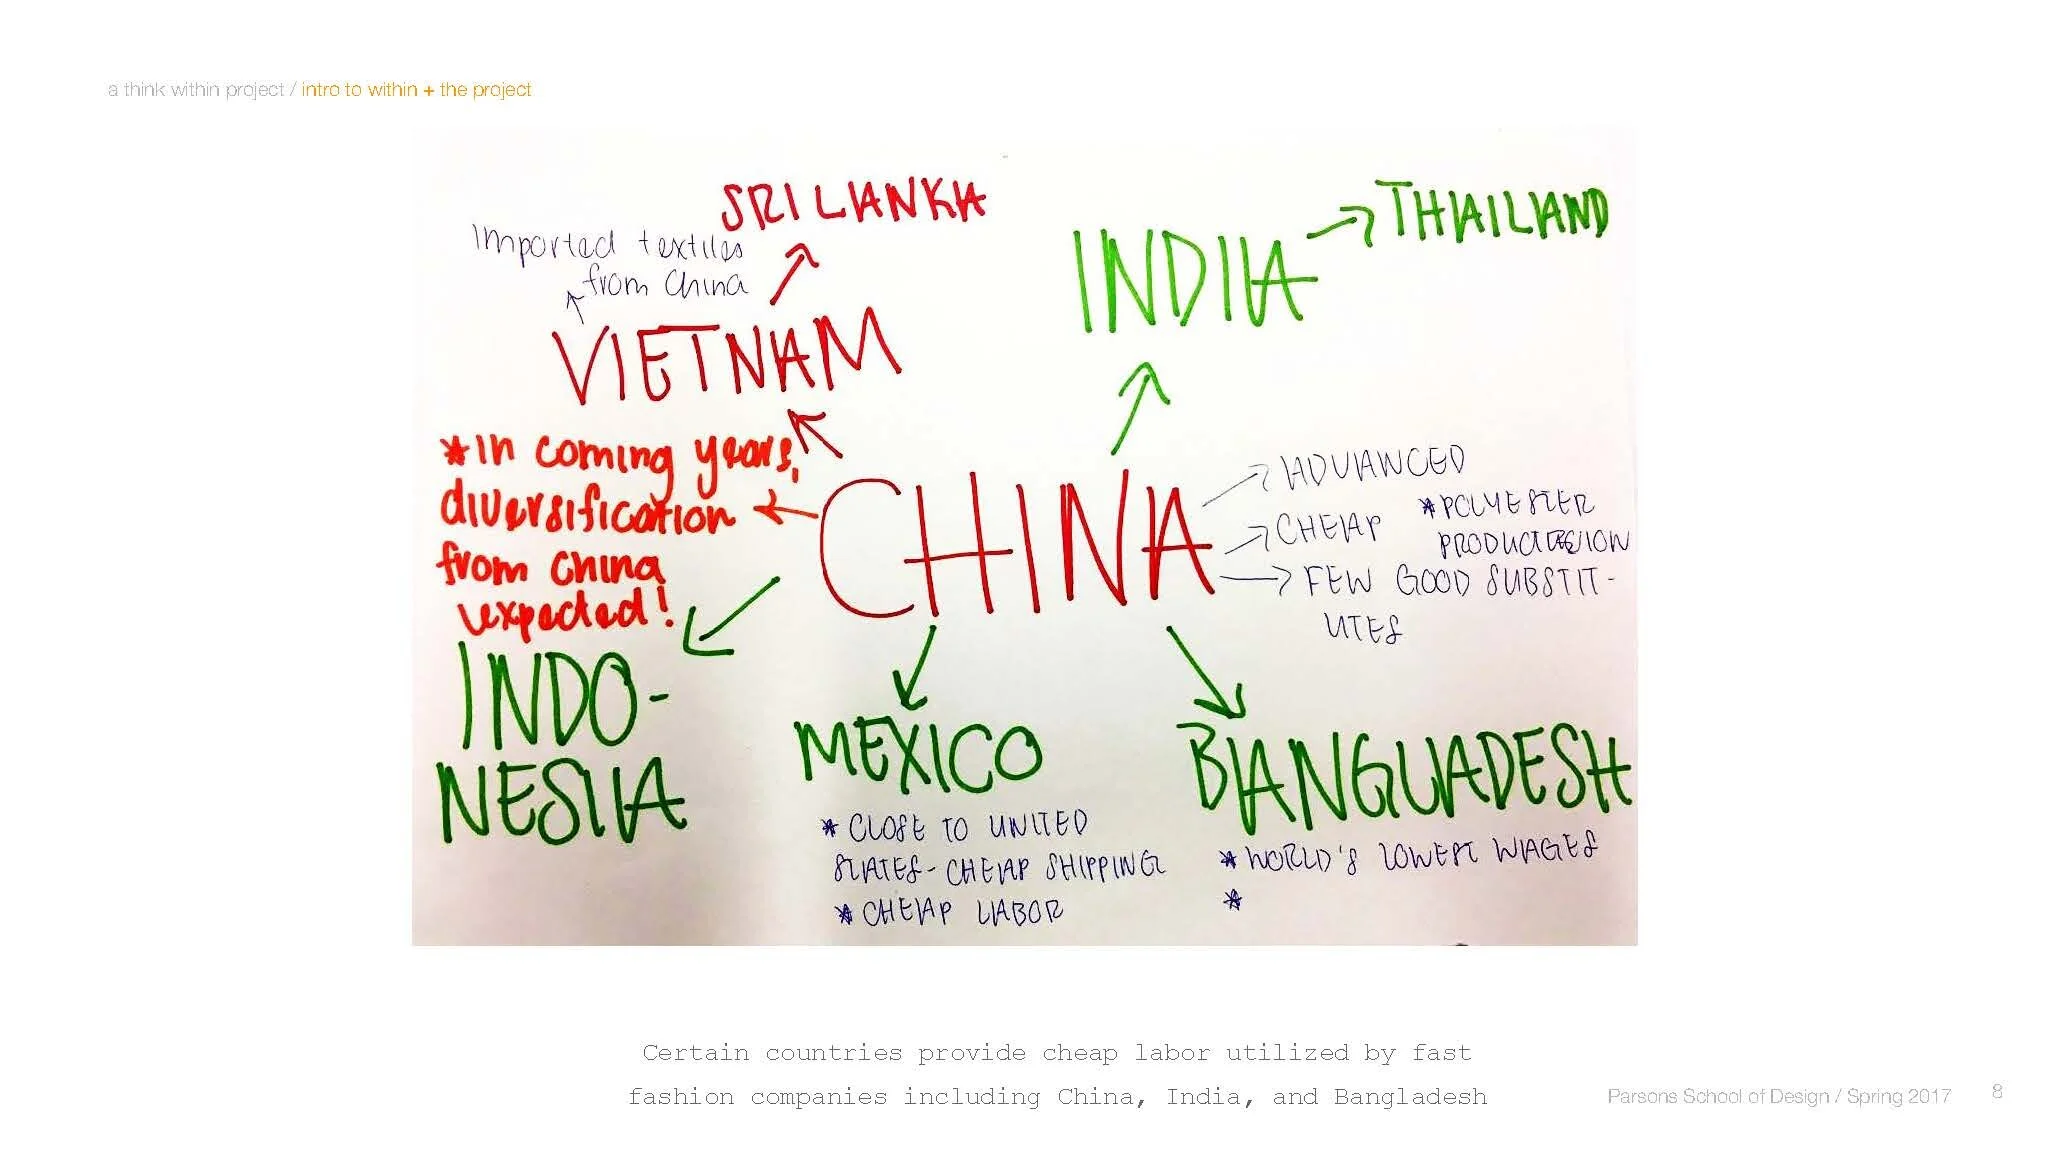 a think within project / intro to within + the project
SRI LANKA
Imported textiles
from China
VIETNAM
INDIA
THAILAND
*In coming years,
diversification
from China
expected!
CHINA
ADVANCED
CHEAP
*POLYESTER
PRODUCTION
FEW GOOD SUBSTIT-
UTES
INDO-
NESIA
MEXICO
* CLOSE TO UNITED
STATES - CHEAP SHIPPING
* CHEAP LABOR
BANGLADESH
* WORLD'S LOWEST WAGES
*
Certain countries provide cheap labor utilized by fast
fashion companies including China, India, and Bangladesh
Parsons School of Design / Spring 2017
8